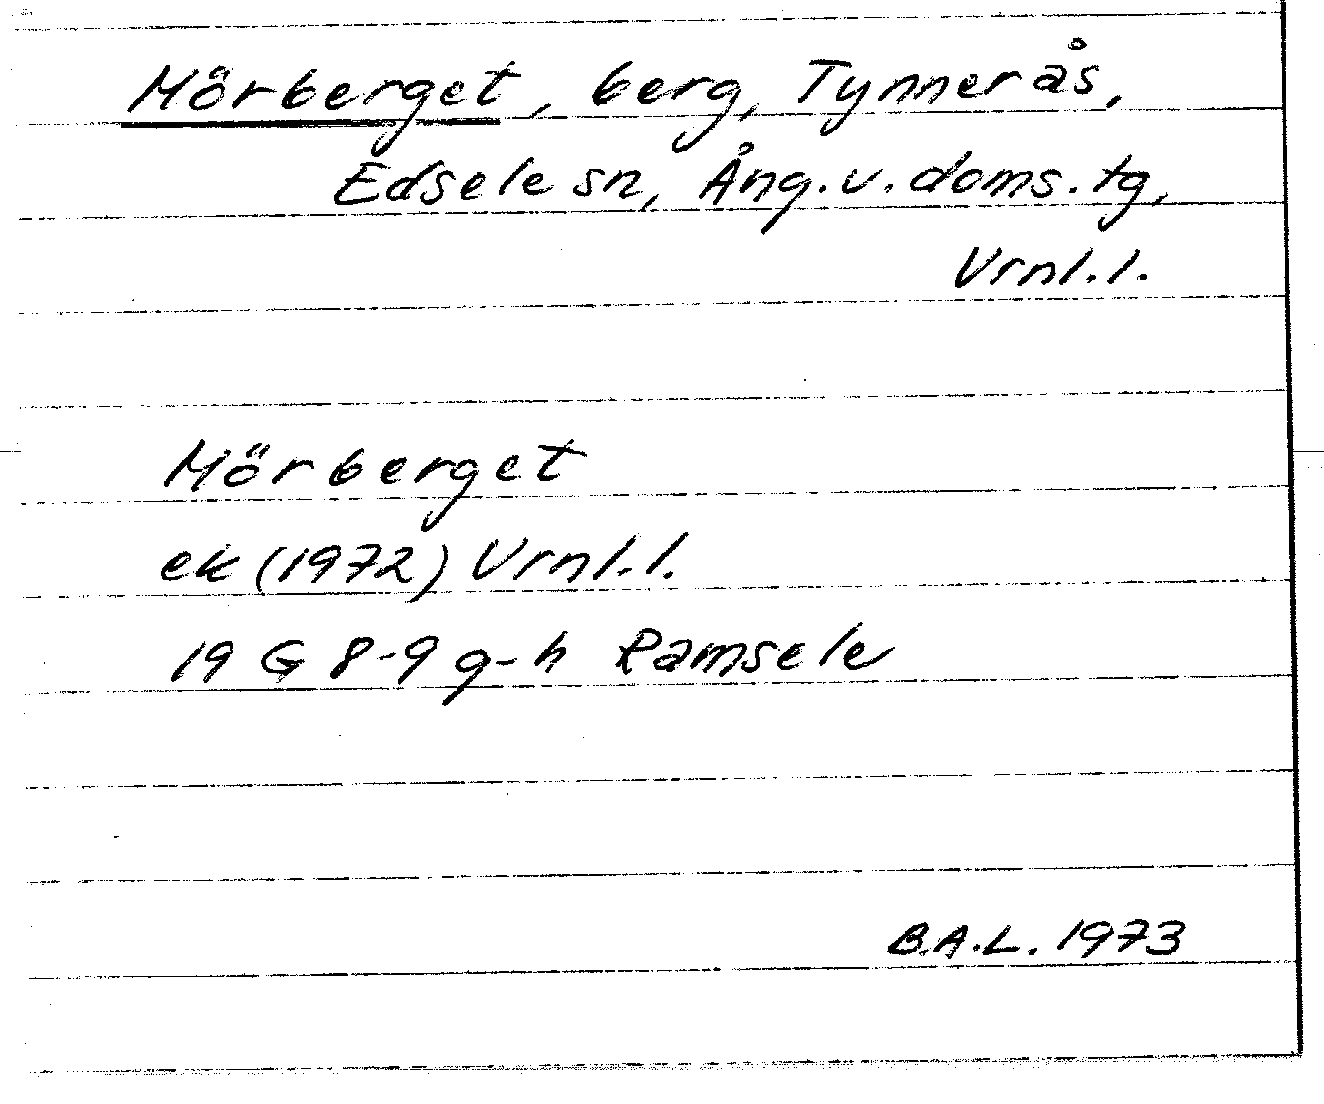 Mörberget, berg, Tynnerås,
Edsele sn, Ång.v.doms.tg,
Vrnl.l.
Mörberget
ek (1972) Vrnl.l.
19 G 8-9 g-h Ramsele
B.A.L. 1973